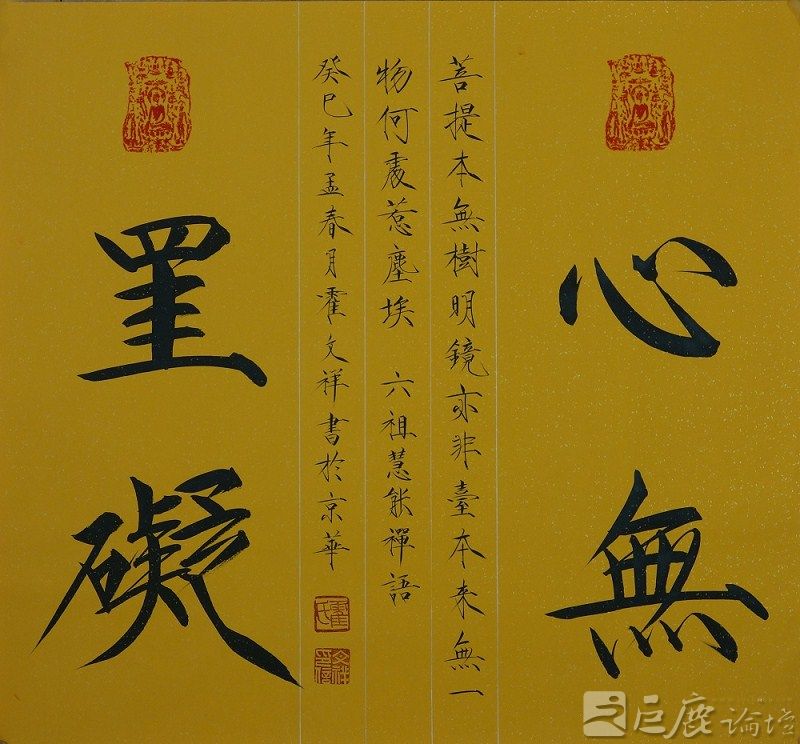 心無
菩提本無樹明鏡亦非臺本来無一
物何處惹塵埃 六祖慧能禪語
癸巳年孟春月霍文祥書於京華
罣礙
霍氏
文祥印信
巨鹿论坛